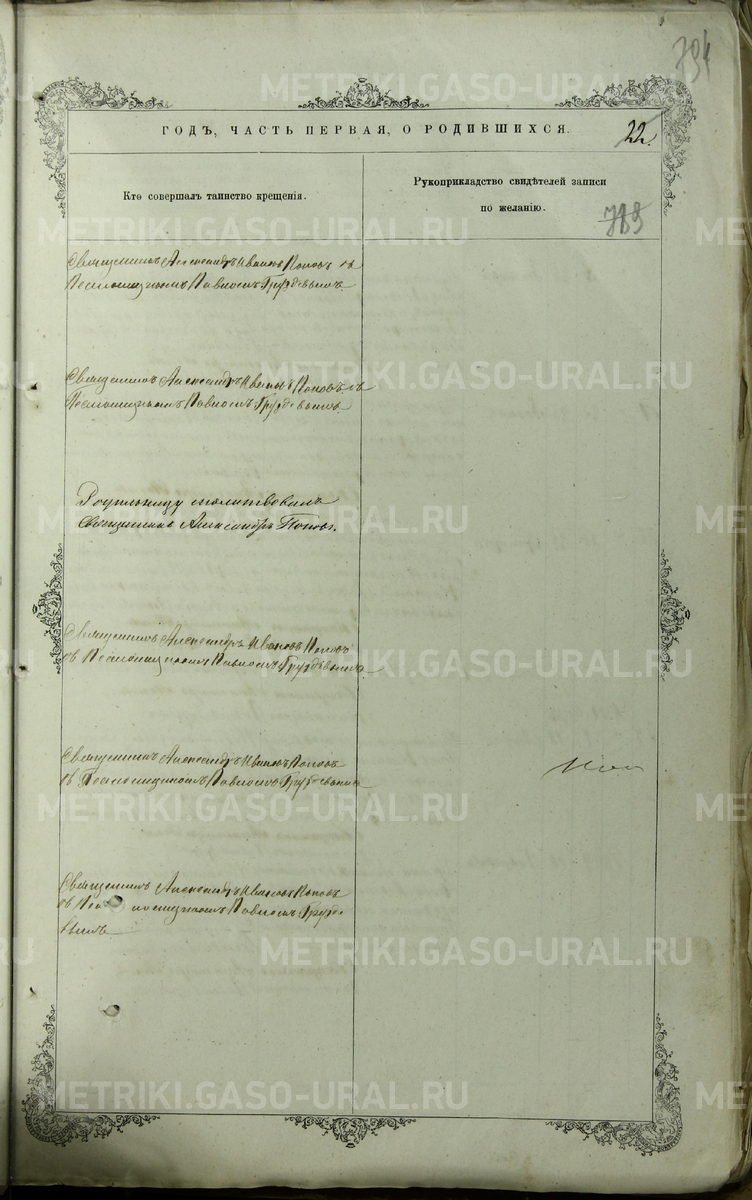 794
ГОДЪ, ЧАСТЬ ПЕРВАЯ, О РОДИВШИХСЯ.
22.
Кто совершалъ таинство крещенія.
Рукоприкладство свидѣтелей записи
по желанію.
789
Священникъ Александръ Ивановъ Поповъ съ
Псаломщикомъ Павломъ Груздевымъ
Священникъ Александръ Ивановъ Поповъ съ
Псаломщикомъ Павломъ Груздевымъ
Родильницу молитвовалъ
Священникъ Александръ Поповъ.
Священникъ Александръ Ивановъ Поповъ
съ Псаломщикомъ Павломъ Груздевымъ
Священникъ Александръ Ивановъ Поповъ
съ Псаломщикомъ Павломъ Груздевымъ
Священникъ Александръ Ивановъ Поповъ
съ Псаломщикомъ Павломъ Грузде-
вымъ
METRIKI.GASO-URAL.RU